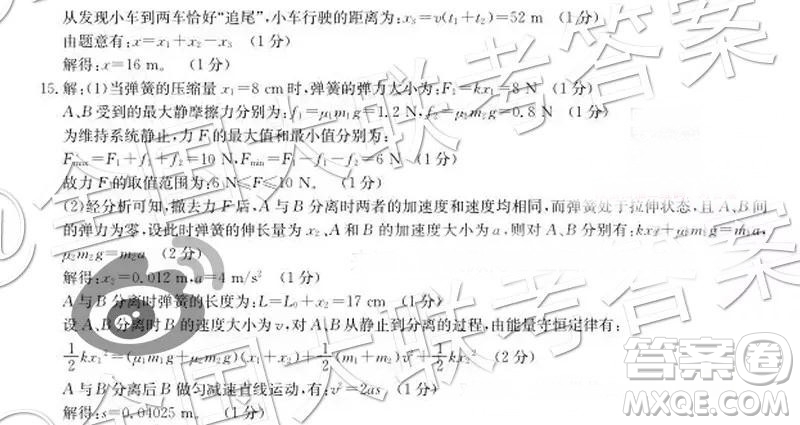 从发现小车到两车恰好“追尾”,小车行驶的距离为:x₃=v(t₁+t₂)=52 m (1分)
由题意有:x=x₁+x₂-x₃ (1分)
解得:x=16 m。 (1分)
15.解:(1)当弹簧的压缩量 x₁=8 cm时,弹簧的弹力大小为:F₁=kx₁=8 N (1分)
A、B受到的最大静摩擦力分别为:f₁=μ₁m₁g=1.2 N,f₂=μ₂m₂g=0.8 N (1分)
为维持系统静止,力 F的最大值和最小值分别为:
Fmax=F₁+f₁+f₂=10 N,Fmin=F₁-f₁-f₂=6 N (1分)
故力 F的取值范围为:6 N≤F≤10 N。 (1分)
(2)经分析可知,撤去力 F后,A 与 B 分离时两者的加速度和速度均相同,而弹簧处于拉伸状态,且 A、B间
的弹力为零,设此时弹簧的伸长量为 x₂、A 和 B 的加速度大小为 a,则对 A、B 分别有:kx₂+μ₁m₁g=m₁a,
μ₂m₂g=m₂a (2分)
解得:x₂=0.012 m,a=4 m/s² (1分)
A 与 B 分离时弹簧的长度为:L=L₀+x₂=17 cm (1分)
设 A、B分离时 B 的速度大小为 v,对 A、B从静止到分离的过程,由能量守恒定律有:
½kx₁²=(μ₁m₁g+μ₂m₂g)(x₁+x₂)+½(m₁+m₂)v²+½kx₂² (1分)
A 与 B 分离后 B 做匀减速直线运动,有:v²=2as (1分)
解得:s=0.04025 m。 (1分)
@全国大联考答案
@全国大联考答案
答案卷
MXQE.COM